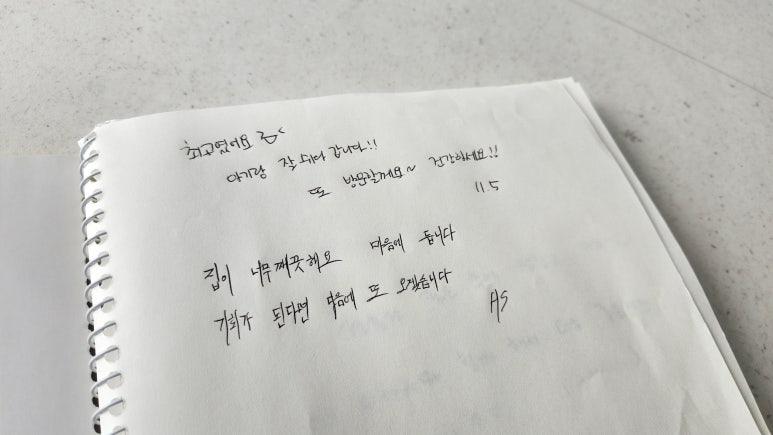 최고였어요
아기랑 잘 쉬다 갑니다!!
또 방문할께요~ 건강하세요!!
11.5
집이 너무 깨끗해요 마음에 듭니다
기회가 된다면 다음에 또 오겠습니다
AS